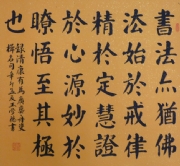 書法亦猶佛
法始於戒律
精於定慧證
於心源妙於
瞭悟至其極
也
錄清康有為廣藝舟雙
楫名句
書